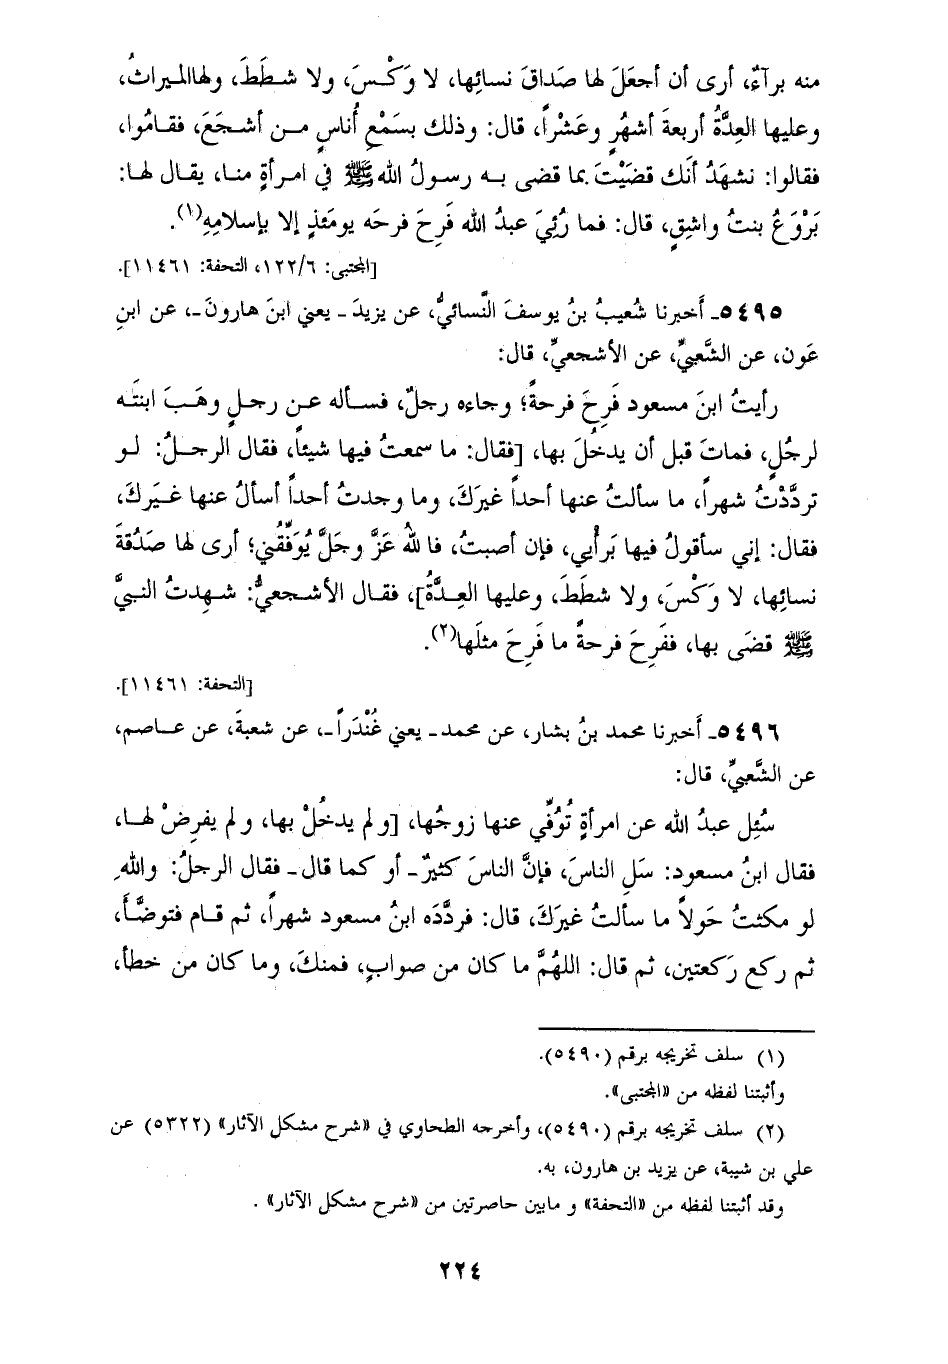 منه برآءٌ، أرى أن أجعَلَ لها صَداقَ نسائِها، لا وَكْسَ، ولا شطَطَ، ولها الميراثُ،
وعليها العِدَّةُ أربعةَ أشهُرٍ وعَشْراً، قال: وذلك بسَمْعِ أُناسٍ من أشجَعَ، فقامُوا،
فقالوا: نشهَدُ أنك قضَيْتَ بما قضى به رسولُ الله ﷺ في امرأةٍ منا، يقال لها:
بَرْوَعُ بنتُ واشِقٍ، قال: فما رُئِيَ عبدُ الله فَرِحَ فرحَه يومَئذٍ إلا بإسلامِهِ(١).
[المجتبى: ١٢٢/٦، التحفة: ١١٤٦١].
٥٤٩٥ـ أَخبرنا شُعيبُ بنُ يوسفَ النَّسائيُّ، عن يزيدَ ـ يعني ابنَ هارونَ ـ، عن ابنِ
عَون، عن الشَّعبيِّ، عن الأشجعيِّ، قال:
رأيتُ ابنَ مسعود فَرِحَ فرحةً؛ وجاءه رجلٌ، فسأله عن رجلٍ وهَبَ ابنتَه
لرجُلٍ، فماتَ قبل أن يدخُلَ بها، [فقال: ما سمعتُ فيها شيئاً، فقال الرجلُ: لو
تردَّدْتُ شهراً، ما سألتُ عنها أحداً غيرَكَ، وما وجدتُ أحداً أسألُ عنها غيَركَ،
فقال: إني سأقولُ فيها بَرأْيي، فإن أصبتُ، فا للهُ عَزَّ وجَلَّ يُوَفِّقُني؛ أرى لها صَدُقةَ
نسائِها، لا وَكْسَ، ولا شطَطَ، وعليها العِدَّةُ]، فقال الأشجعيُّ: شهِدتُ النبيَّ
ﷺ قضَى بها، ففَرِحَ فرحةً ما فَرِحَ مثلَها(٢).
[التحفة: ١١٤٦١].
٥٤٩٦ـ أَخبرنا محمد بنُ بشار، عن محمد ـ يعني غُنْدَراً ـ، عن شعبةَ، عن عاصم،
عن الشَّعبيِّ، قال:
سُئِل عبدُ الله عن امرأةٍ تُوُفِّي عنها زوجُها، [ولم يدخُلْ بها، ولم يفرِضْ لها،
فقال ابنُ مسعود: سَلِ الناسَ، فإنَّ الناسَ كثيرٌ ـ أو كما قال ـ فقال الرجلُ: واللهِ
لو مكثتُ حَولاً ما سألتُ غيرَكَ، قال: فردَّدَه ابنُ مسعود شهراً، ثم قام فتوضَّأَ،
ثم ركع رَكعتين، ثم قال: اللهُمَّ ما كان من صوابٍ، فمنكَ، وما كان من خطأ،
(١) سلف تخريجه برقم (٥٤٩٠).
وأثبتنا لفظه من «المجتبى».
(٢) سلف تخريجه برقم (٥٤٩٠)، وأخرجه الطحاوي في «شرح مشكل الآثار» (٥٣٢٢) عن
علي بن شيبة، عن يزيد بن هارون، به.
وقد أثبتنا لفظه من «التحفة» و مابين حاصرتين من «شرح مشكل الآثار» .
٢٢٤